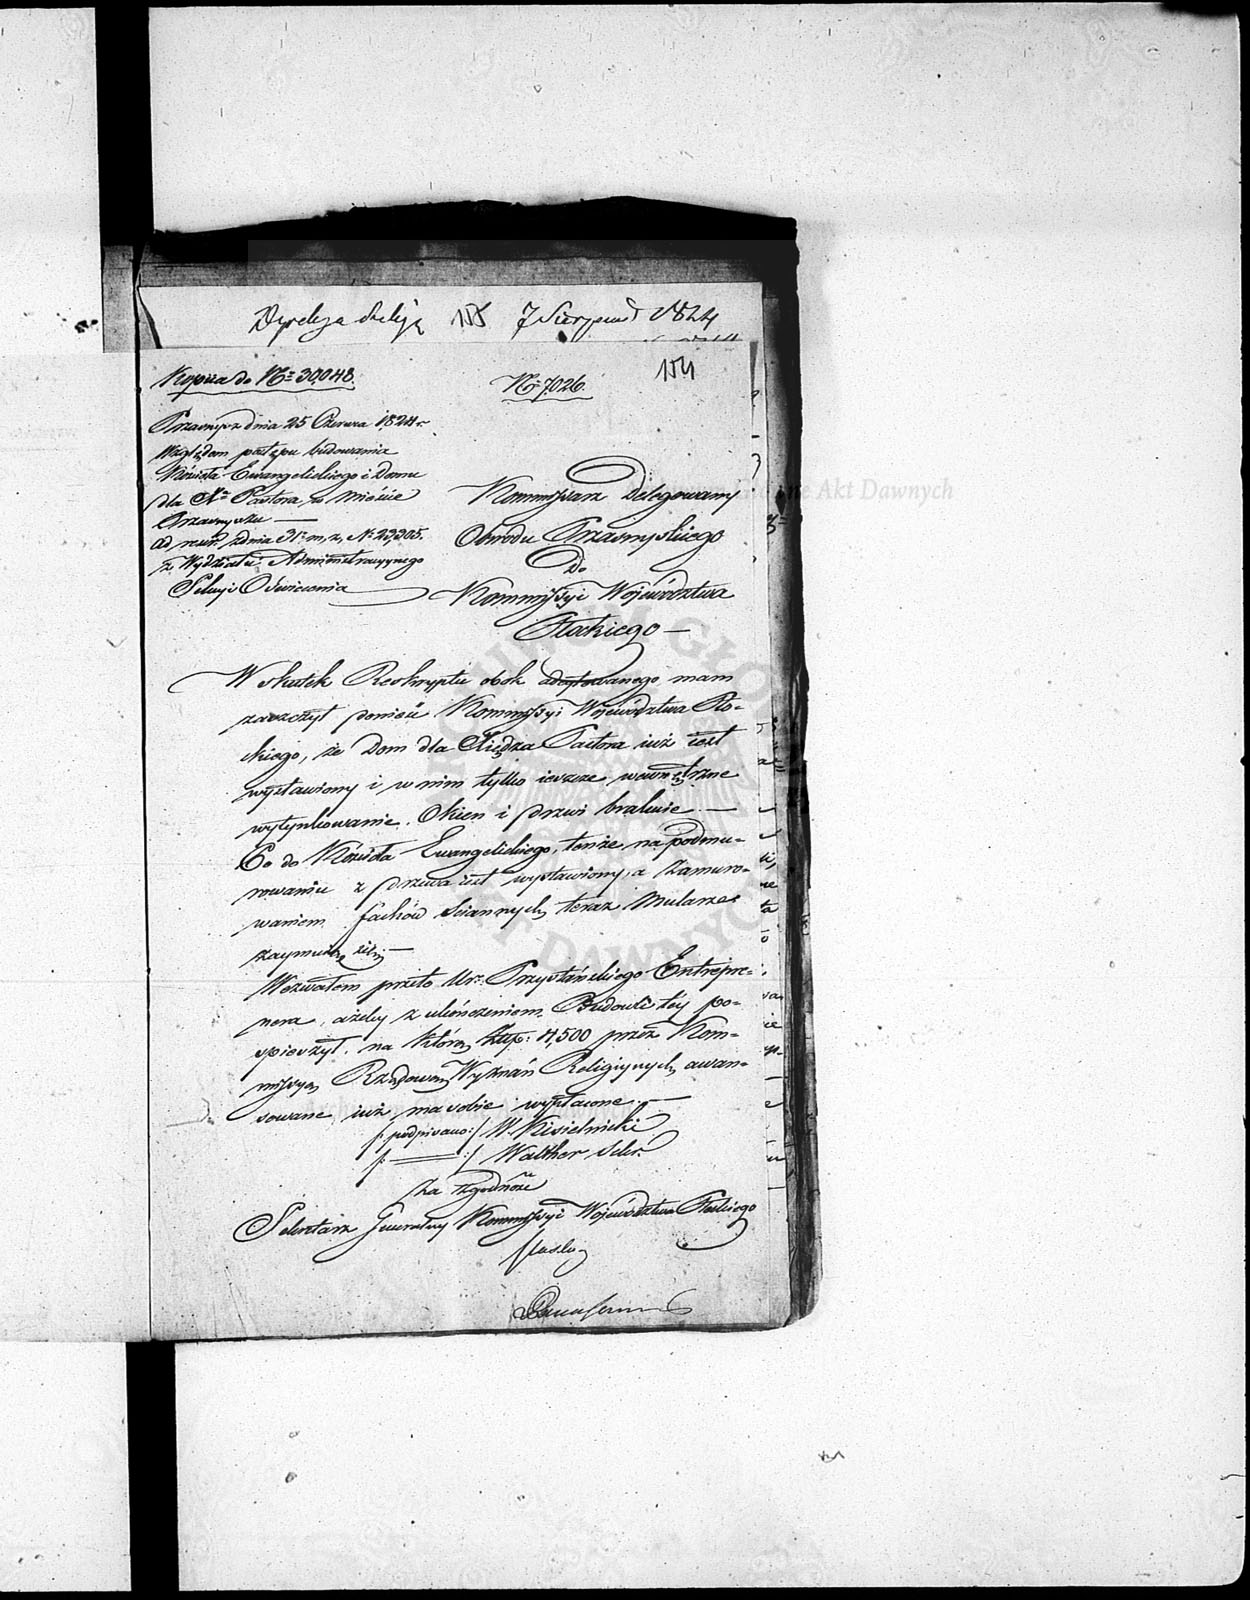 155 7 Sierpnia 1824
154
Kopiia do Nº 30,048.
Nº 7026.
Przasnysz dnia 25 Czerwca 1824 r.
Względem postępu budowania
Kościoła Ewangelickiego i Domu
dla Xa Pastora w Mieście
Przasnyszu —
ad reskr. z dnia 31 m, z, Nº 23,305.
z Wydziału Administracyynego
Sekcyi Oświecenia
Kommissarz Delegowany
Obwodu Przasnyskiego
Do
Kommissyi Województwa
Płockiego —
W skutek Reskryptu obok adcytowanego mam
zaszczyt donieść Kommissyi Województwa Pło-
ckiego, że Dom dla Xiędza Pastora iuż iest
wystawiony i w nim tylko ieszcze wewnętrzne
wytynkowanie. Okien i drzwi brakuie. —
Co do Kościoła Ewangelickiego, tenże na podmu-
rowaniu z drzewa iest wystawiony, a zamuro-
waniem fachów sciannych teraz Mularze
zaymuią się —
Wezwałem przeto Ur. Przystańskiego Entrepre-
nera, ażeby z ukończeniem Budowli téy po-
spieszył, na którą Złtp: 4,500 przez Kom-
missyą Rządową Wyznań Religiynych awan-
sowane iuż ma sobie wypłacone. —
/: podpisano :/ W. Kisielnicki
/: — :/ Walther Sekr.
Za zgodność
Sekretarz Generalny Kommissyi Województwa Płockiego
Archiwum Główne Akt Dawnych